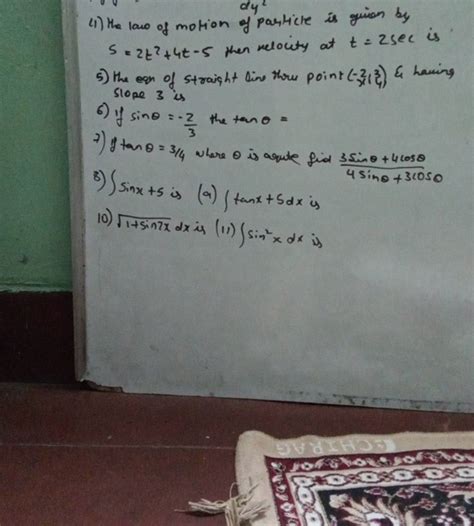 dy²
4) The law of motion of particle is given by
S = 2t² + 4t - 5 then velocity at t = 2sec is
5) The eqn of straight line thro point & having
slope 3 is
6) If sinθ = -2/3 the tanθ =
7) If tanθ = 3/4 where θ is acute find 3sinθ + 4cosθ / 4sinθ + 3cosθ
8) ∫ sinx + 5 is (9) ∫ tanx + 5dx is
10) √1+sin2x dx is (11) ∫ sin²x dx is
CHIRAG